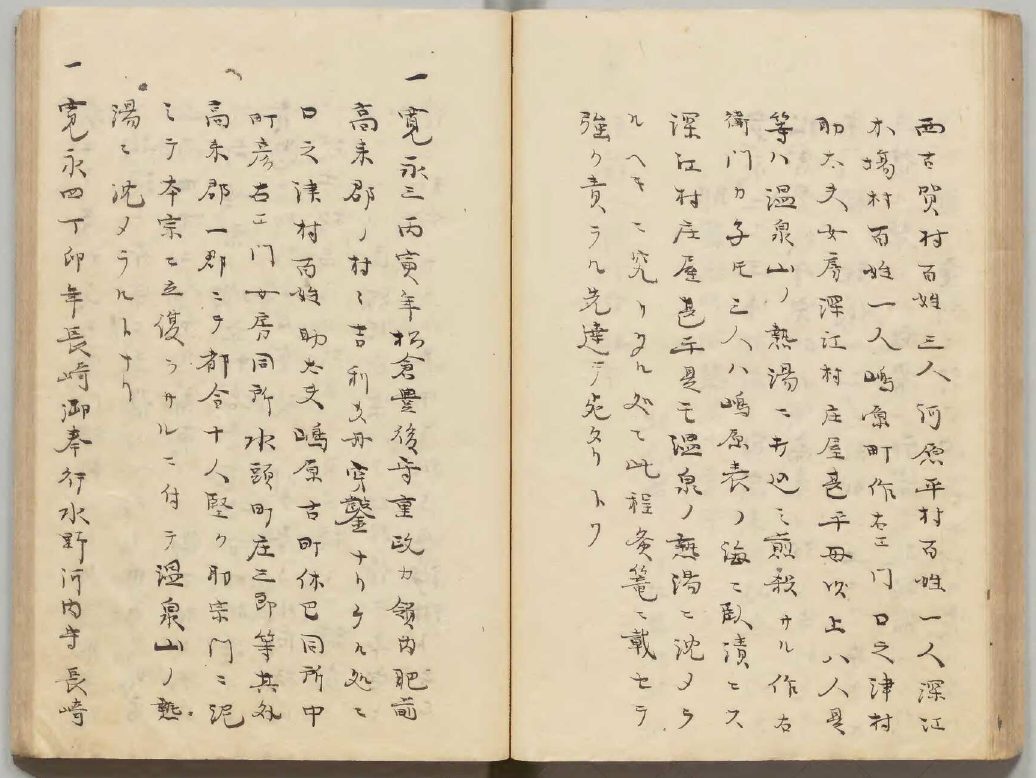 西古賀村百姓三人河原平村百姓一人深江
木塲村百姓一人嶋原町作右エ門口之津村
助太夫女房深江村庄屋甚平母以上八人是
等ハ温泉山ノ熱湯ニ打込ミ煎殺サル作右
衛門カ子𪜈三人ハ嶋原表ノ海ニ臥漬ニス
深江村庄屋甚平是モ温泉ノ熱湯ニ沈メラ
ルヘキニ究リタル処ニ此程炙篭ニ載セラ
強ク責ラル先達テ死タリトソ
一寛永三丙寅年松倉豊後守重政カ領内肥前
高来郡ノ村ミ吉利支丹穿鑿ナリケル処ニ
口之津村百姓助太夫嶋原古町休巴同所中
町彦右エ門女房同所水頭町庄三郎等其外
高来郡一郡ニテ都合十人堅ク耶宗門ニ泥
ミテ本宗ニ立復ラサルニ付テ温泉山ノ熱
湯ニ沈メラルトナリ
一寛永四丁卯年長崎御奉行水野河内守長崎